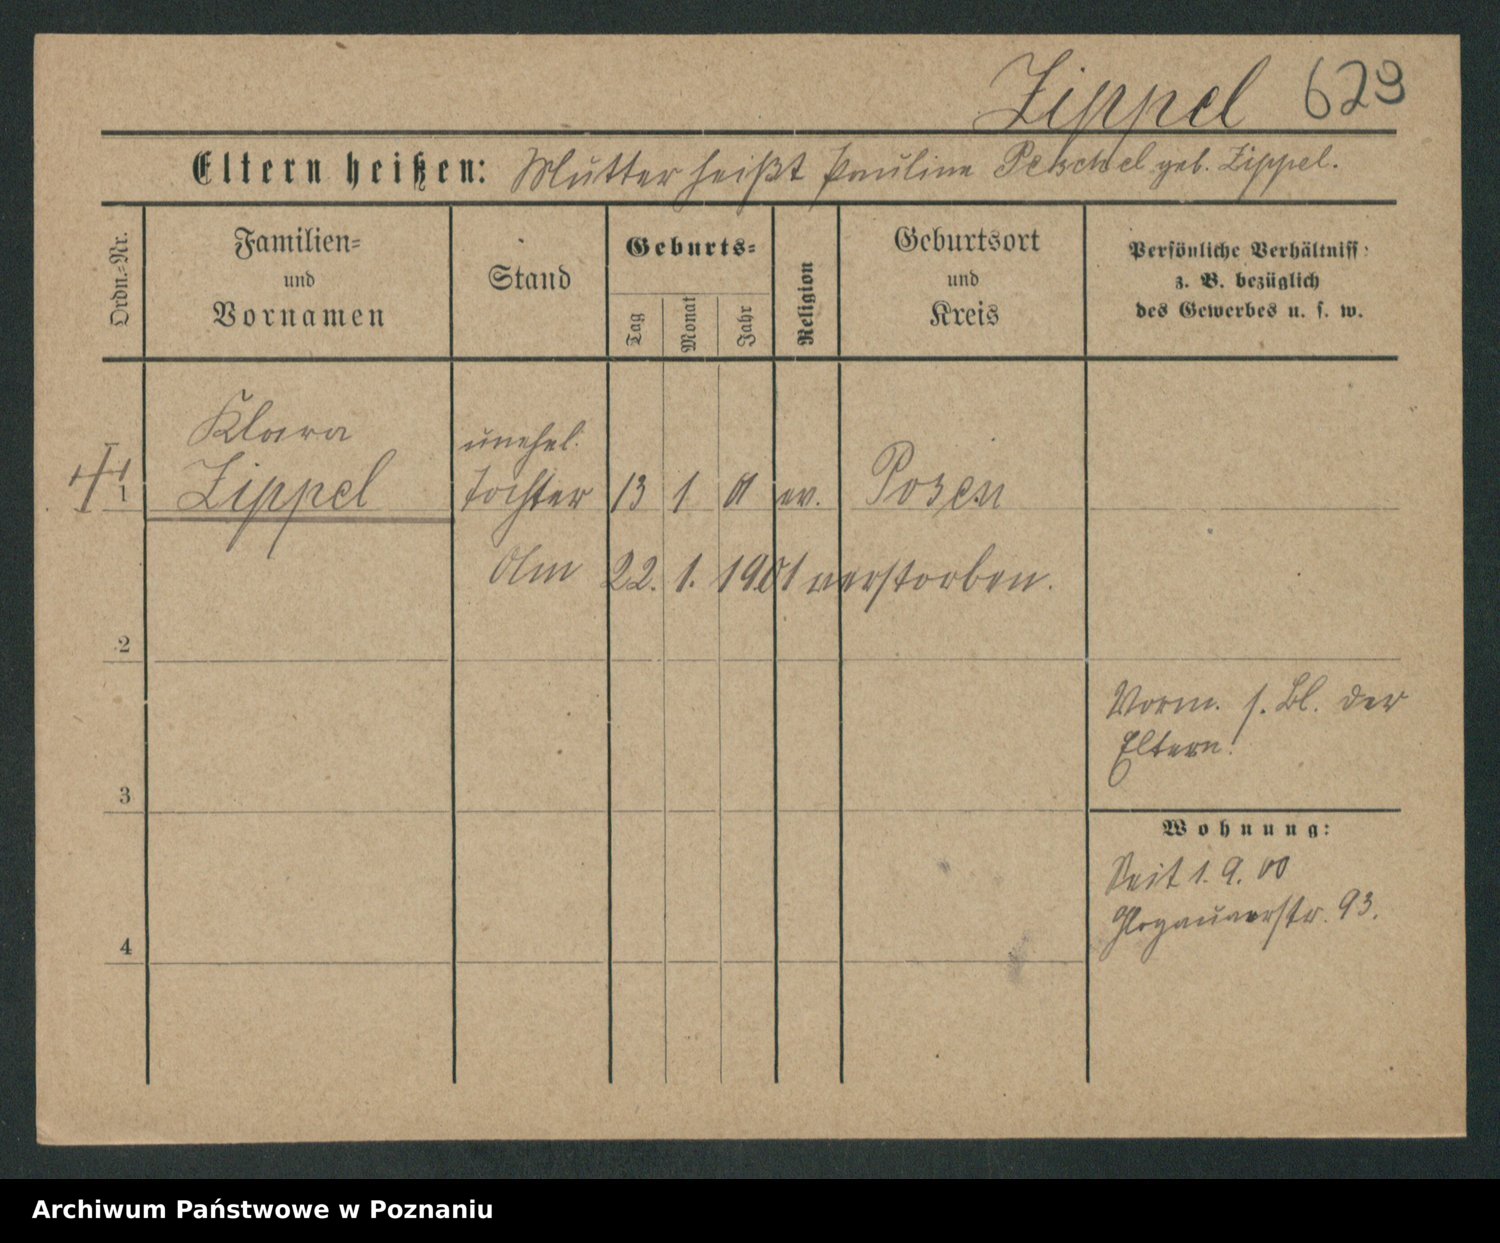 Zippel 623
Eltern heißen: Mutter heißt Pauline Peschel geb. Zippel.
Ordn.-Nr.
Familien-
und
Vornamen
Stand
Geburts-
Tag
Monat
Jahr
Religion
Geburtsort
und
Kreis
Persönliche Verhältniss
z. B. bezüglich
des Gewerbes u. s. w.
Klara unehel.
1 Zippel Tochter 13 1 01 ev. Posen
Am 22. 1. 1901 verstorben.
2
Vorm. s. Bl. der
Eltern!
3
Wohnung:
Seit 1. 9. 00
Glogauerstr. 93.
4
Archiwum Państwowe w Poznaniu